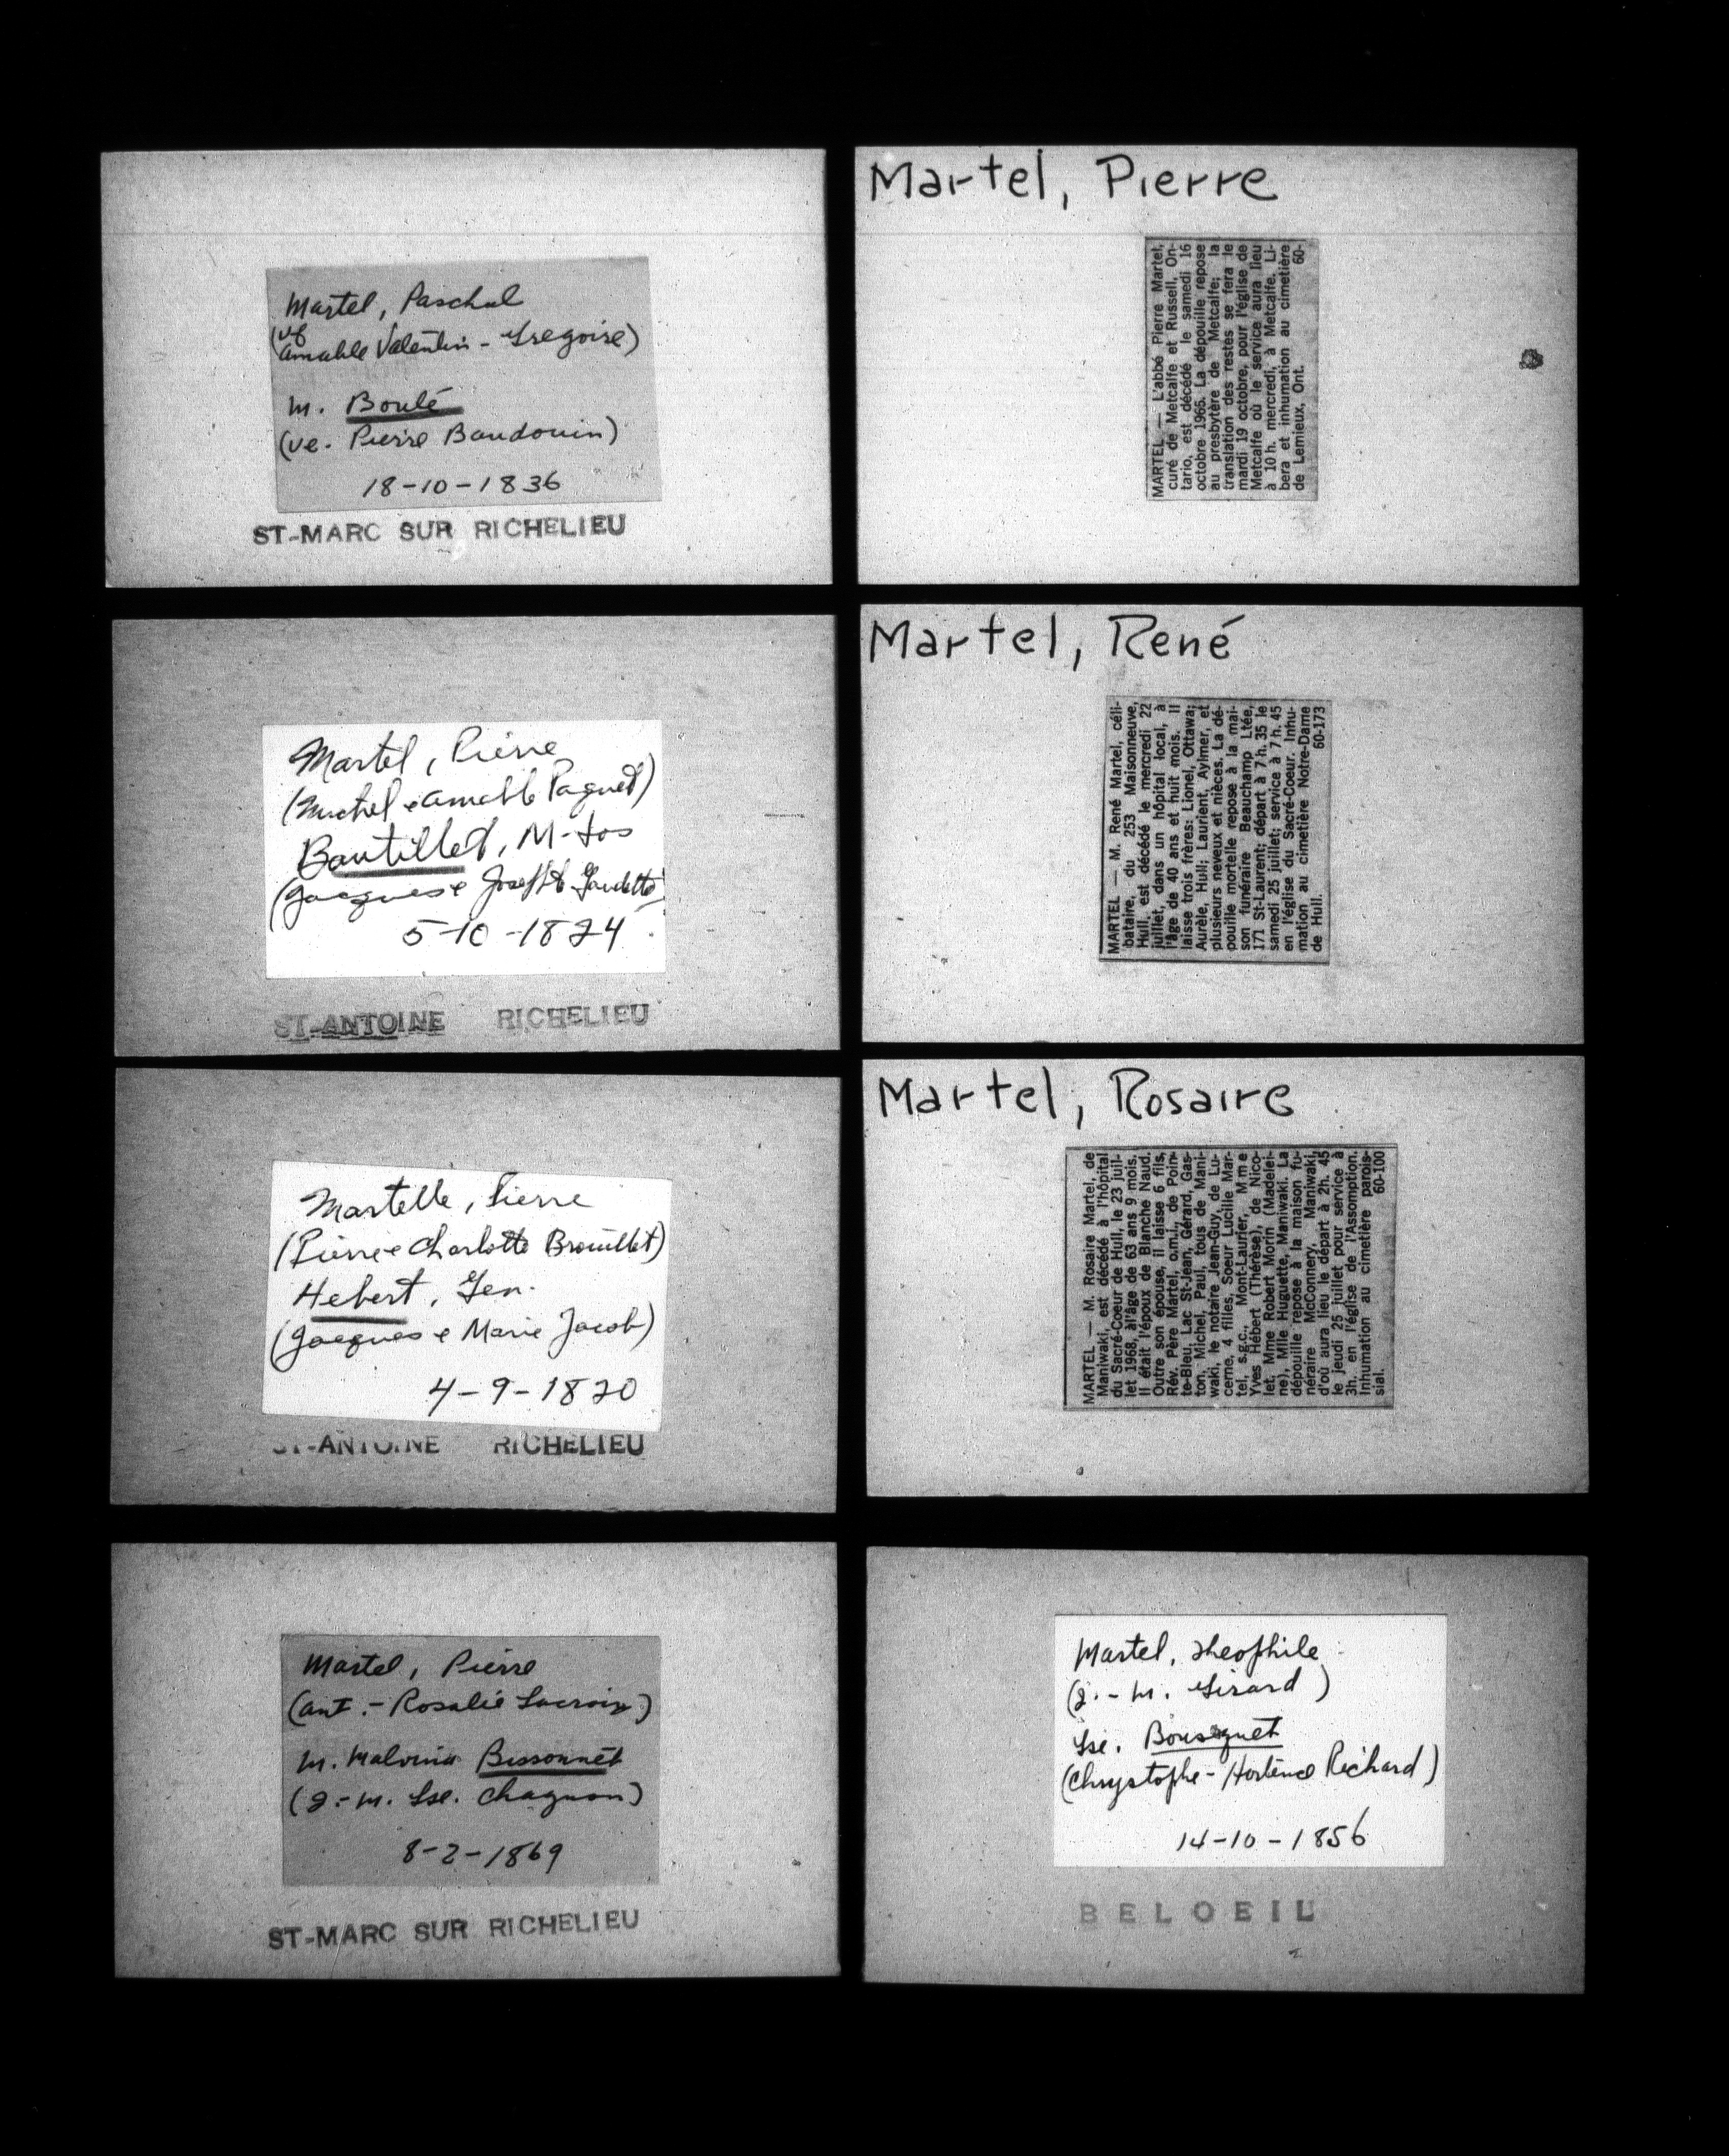 Martel, Paschal
(vf
Amable Valentin - Gregoire)
m. Boulé
(ve. Pierre Baudouin)
18-10-1836
ST-MARC SUR RICHELIEU
Martel, Pierre
(Michel e Amable Paquet)
Boutillet, M-Jos
(Jacques e Joseph Gaudette)
5-10-1824
ST-ANTOINE RICHELIEU
Martelle, Pierre
(Pierre e Charlotte Brouillet)
Hebert, Gen.
(Jacques e Marie Jacob)
4-9-1820
ST-ANTOINE RICHELIEU
Martel, Pierre
(Ant. - Rosalie Lacroix)
M. Malvina Bissonnet
(J.-M. Lse. Chagnon)
8-2-1869
ST-MARC SUR RICHELIEU
Martel, Pierre
MARTEL — L'abbé Pierre Martel,
curé de Metcalfe et Russell, On-
tario, est décédé le samedi 16
octobre 1965. La dépouille repose
au presbytère de Metcalfe; la
translation des restes se fera le
mardi 19 octobre, pour l'église de
Metcalfe où le service aura lieu
à 10 h. mercredi, à Metcalfe. Li-
bera et inhumation au cimetière
de Lemieux, Ont. 60-
Martel, René
MARTEL — M. René Martel, céli-
bataire, du 253 Maisonneuve,
Hull, est décédé le mercredi 22
juillet, dans un hôpital local, à
l'âge de 40 ans et huit mois. Il
laisse trois frères: Lionel, Ottawa;
Aurèle, Hull; Laurient, Aylmer, et
plusieurs neveux et nièces. La dé-
pouille mortelle repose à la mai-
son funéraire Beauchamp Ltée,
171 St-Laurent; départ à 7 h. 35 le
samedi 25 juillet; service à 7 h. 45
en l'église du Sacré-Coeur. Inhu-
mation au cimetière Notre-Dame
de Hull. 60-173
Martel, Rosaire
MARTEL — M. Rosaire Martel, de
Maniwaki, est décédé à l'hôpital
du Sacré-Coeur de Hull, le 23 juil-
let 1968, à l'âge de 63 ans 9 mois.
Il était l'époux de Blanche Naud.
Outre son épouse, il laisse 6 fils,
Rév. Père Martel, o.m.i., de Poin-
te-Bleu, Lac St-Jean, Gérard, Gas-
ton, Michel, Paul, tous de Mani-
waki, le notaire Jean-Guy, de Lu-
cerne, 4 filles, Soeur Lucille Mar-
tel, s.g.c., Mont-Laurier, Mme
Yves Hébert (Thérèse), de Nico-
let, Mme Robert Morin (Madelei-
ne), Mlle Huguette, Maniwaki. La
dépouille repose à la maison fu-
néraire McConnery, Maniwaki,
d'où aura lieu le départ à 2h. 45
le jeudi 25 juillet pour service à
3h. en l'église de l'Assomption.
Inhumation au cimetière parois-
sial. 60-100
Martel, Theophile
(J.-M. Girard)
Lse. Bousquet
(Chrystophe - Hortence Richard)
14-10-1856
BELOEIL